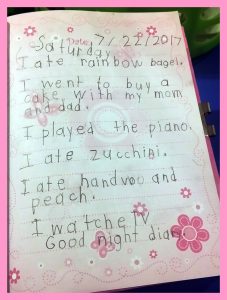 Saturday 7/22/2017
I ate rainbow bagel.
I went to buy a
cake with my mom
and dad.
I played the piano.
I ate zucchini.
I ate handvoo and
peach.
I watche TV
Good night diary